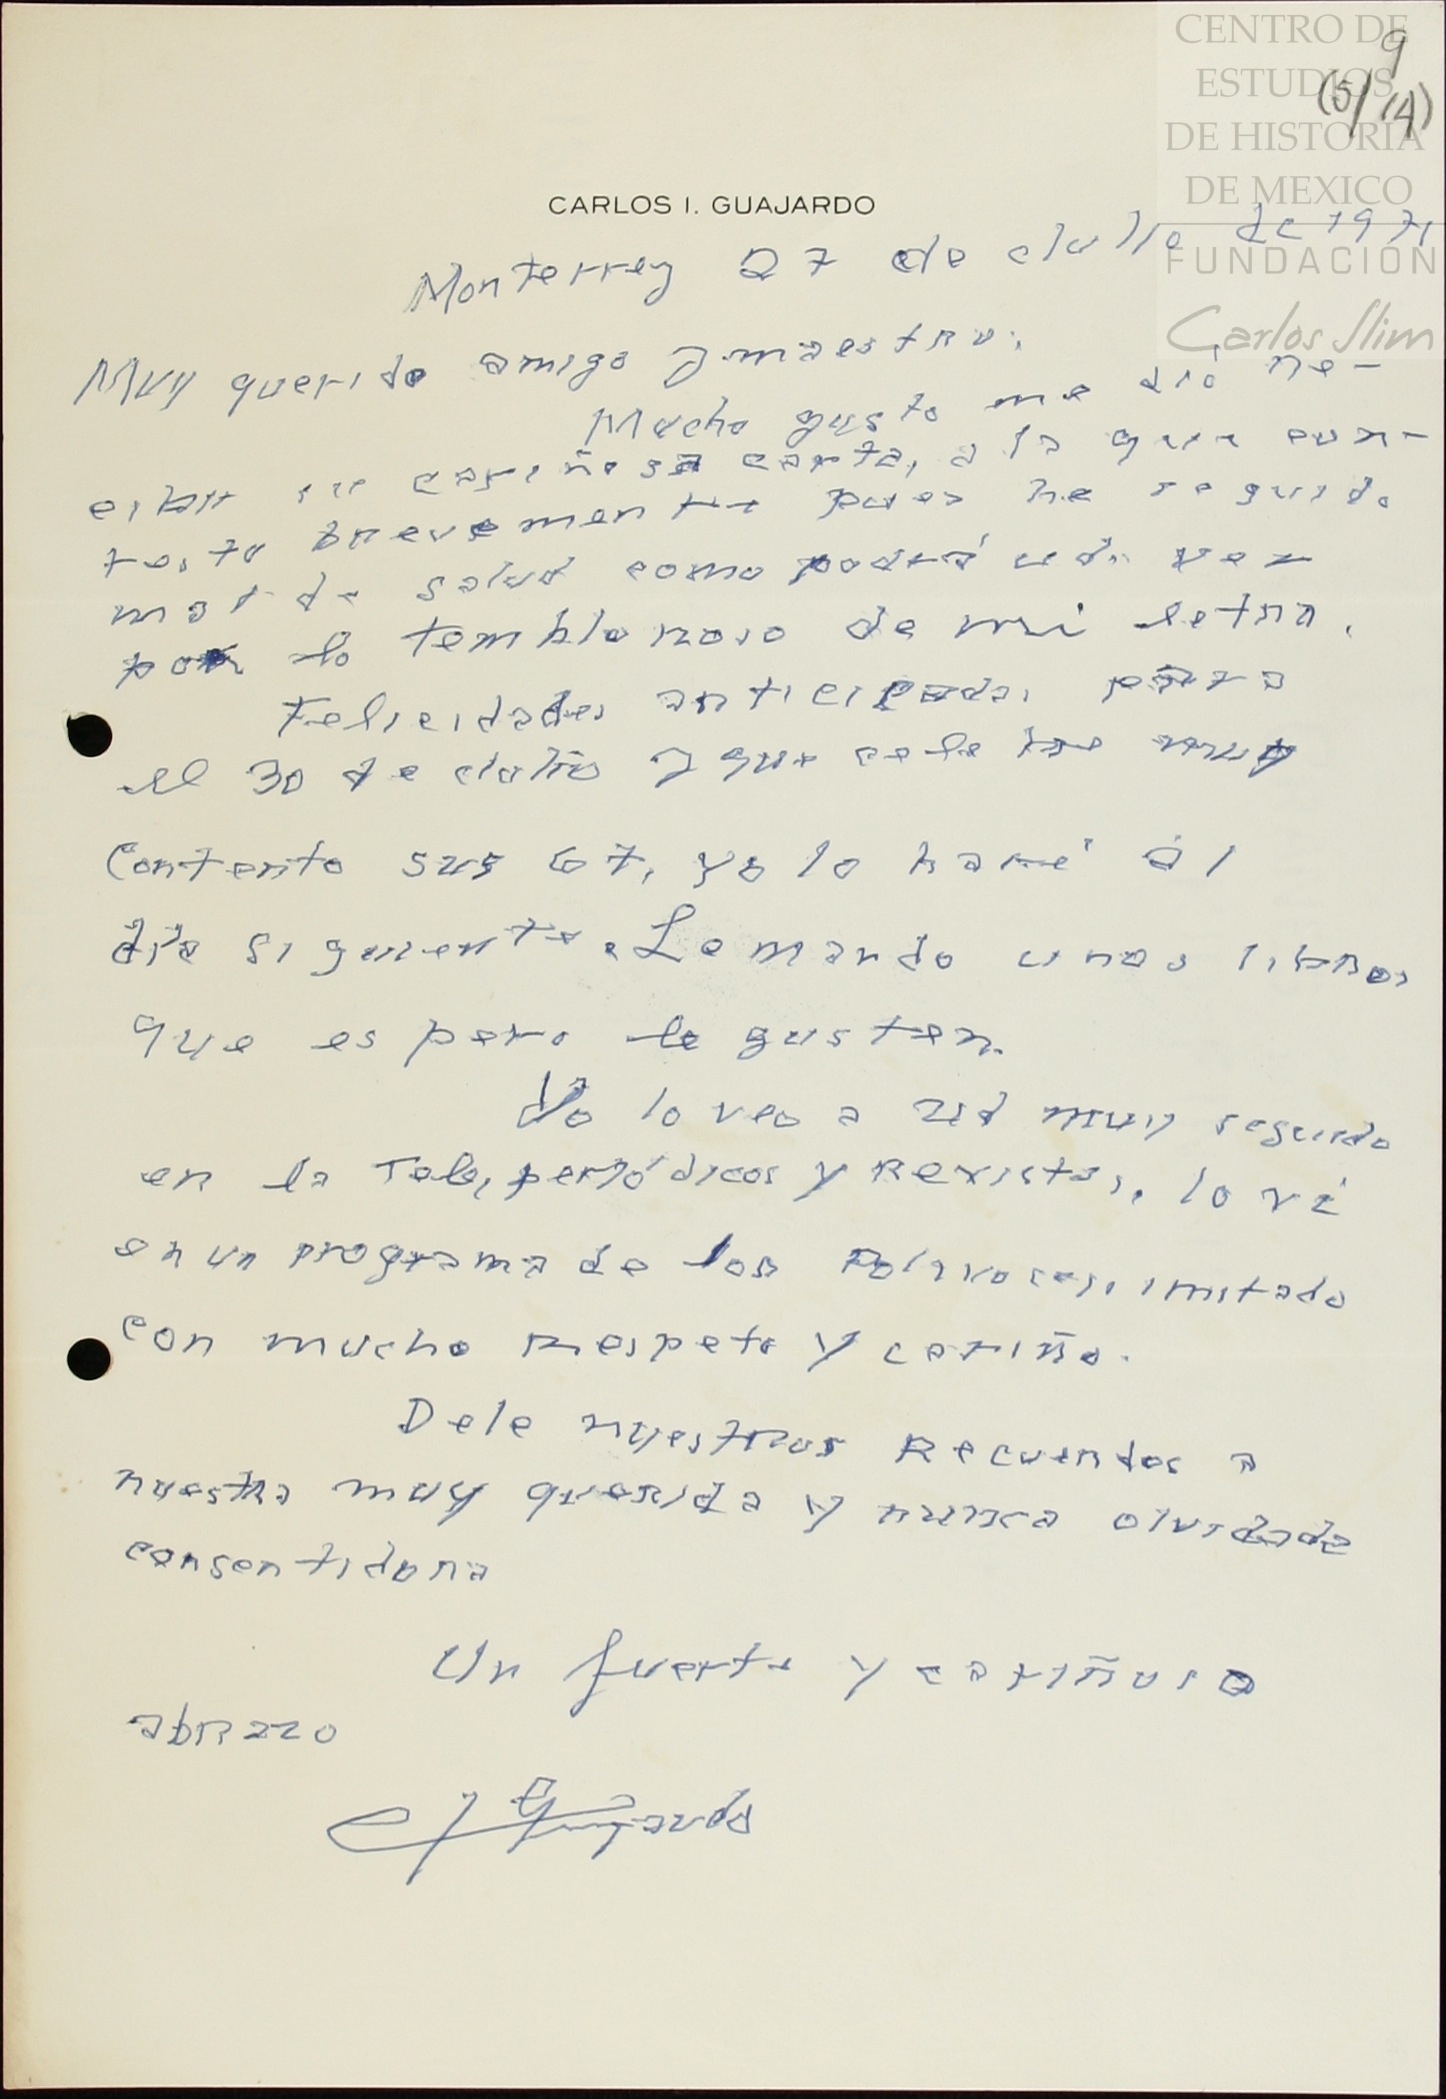 CENTRO DE
ESTUDIOS
DE HISTORIA
DE MEXICO
FUNDACIÓN
Carlos Slim
9
(5/14)
CARLOS I. GUAJARDO
Monterrey 27 de Julio de 1971
Muy querido amigo y maestro:
Mucho gusto me dió re-
cibir su cariñosa carta, a la que con-
testo brevemente pues he seguido
mal de salud como podrá ud. ver
por lo tembloroso de mi letra.
Felicidades anticipadas para
el 30 de Julio y que celebre muy
contento sus 67, yo lo haré al
día siguiente. Le mando unos libros
que espero le gusten.
Yo lo veo a Ud muy seguido
en la Tele, periódicos y Revistas, lo ví
en un programa de los Polivoces, imitado
con mucho Respeto y cariño.
Dele nuestros Recuerdos a
nuestra muy querida y nunca olvidada
consentidora
Un fuerte y cariñoso
abrazo
C I Guajardo